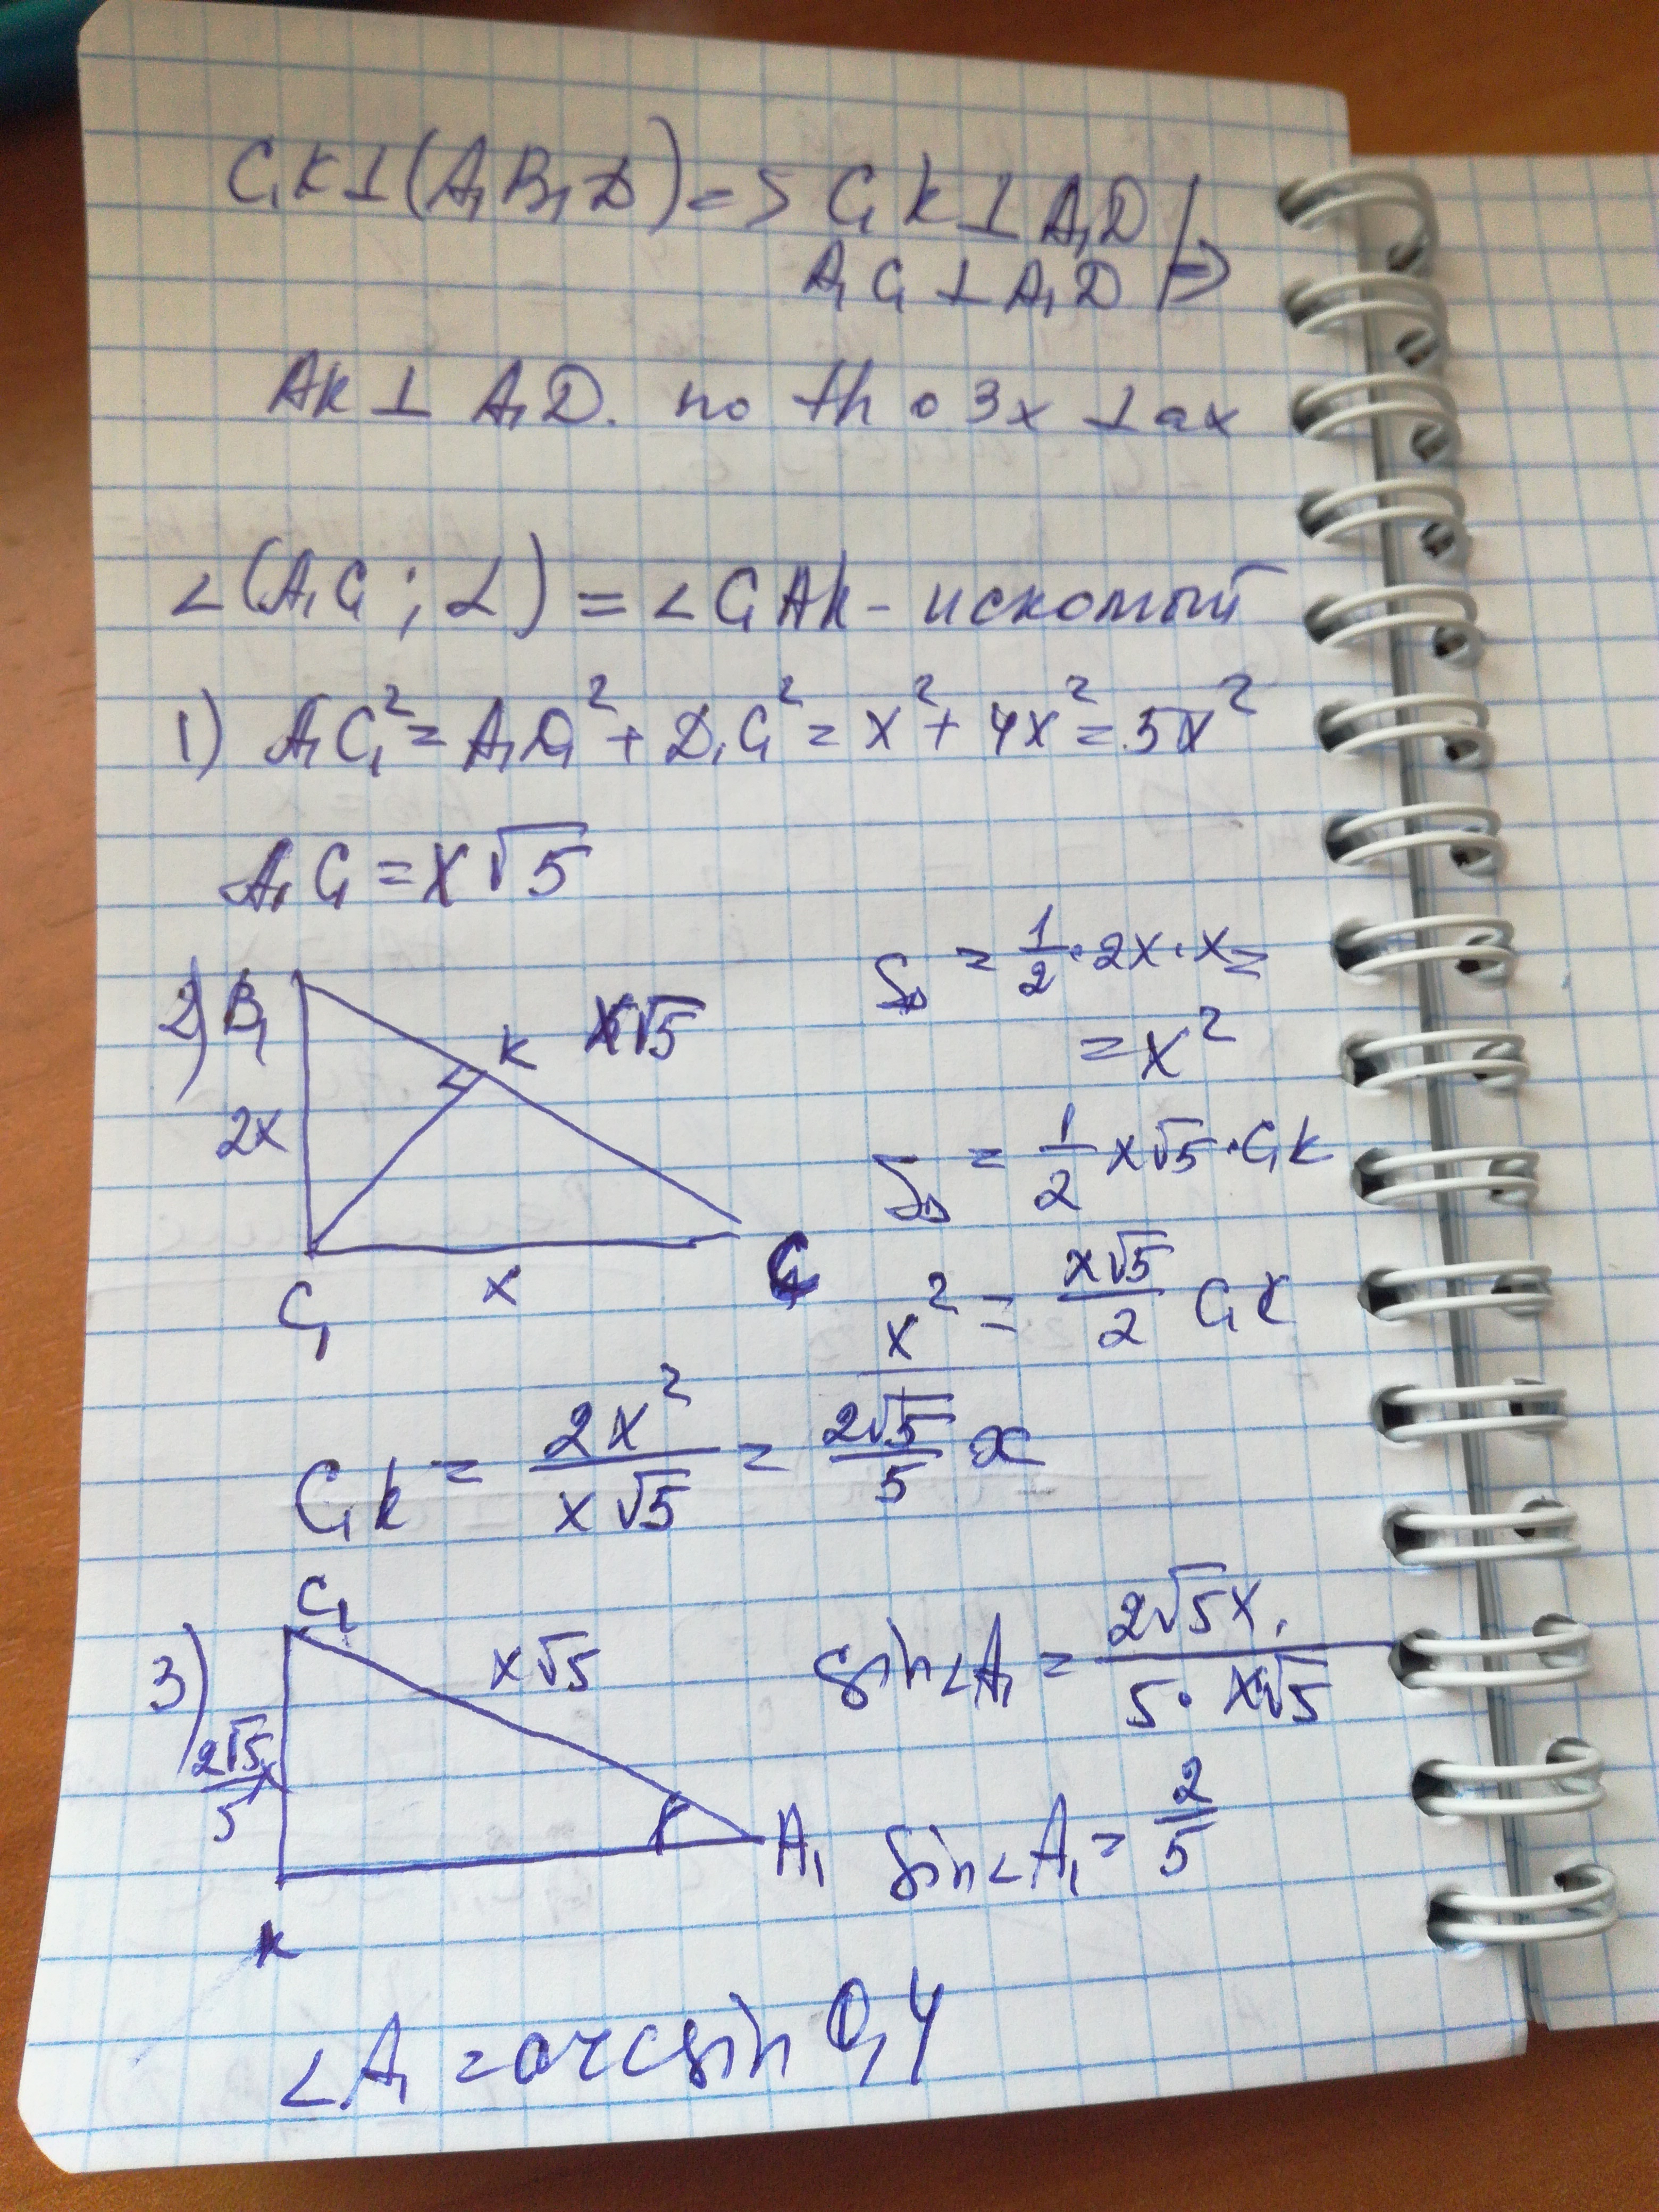 C₁K⊥(A₁B₁D)=> C₁K⊥A₁D
A₁C₁⊥A₁D |=>
AK⊥ A₁D. по th о 3х ⊥ах
∠(A₁C₁; α) = ∠C₁AK - искомый
1) A₁C₁² = A₁D₁² + D₁C₁² = x² + 4x² = 5x²
A₁C₁ = x√5
2) B₁ K x√5
2x
C₁ x
S△ = 1/2 · 2x · x =
= x²
S△ = 1/2 x√5 · C₁K
x² = x√5/2 C₁K
C₁K = 2x²/x√5 = 2√5/5 x
3) C₁ x√5
2√5/5 x
K A₁
sin∠A₁ = 2√5x/5·x√5
sin∠A₁ = 2/5
∠A₁ = arcsin 0,4